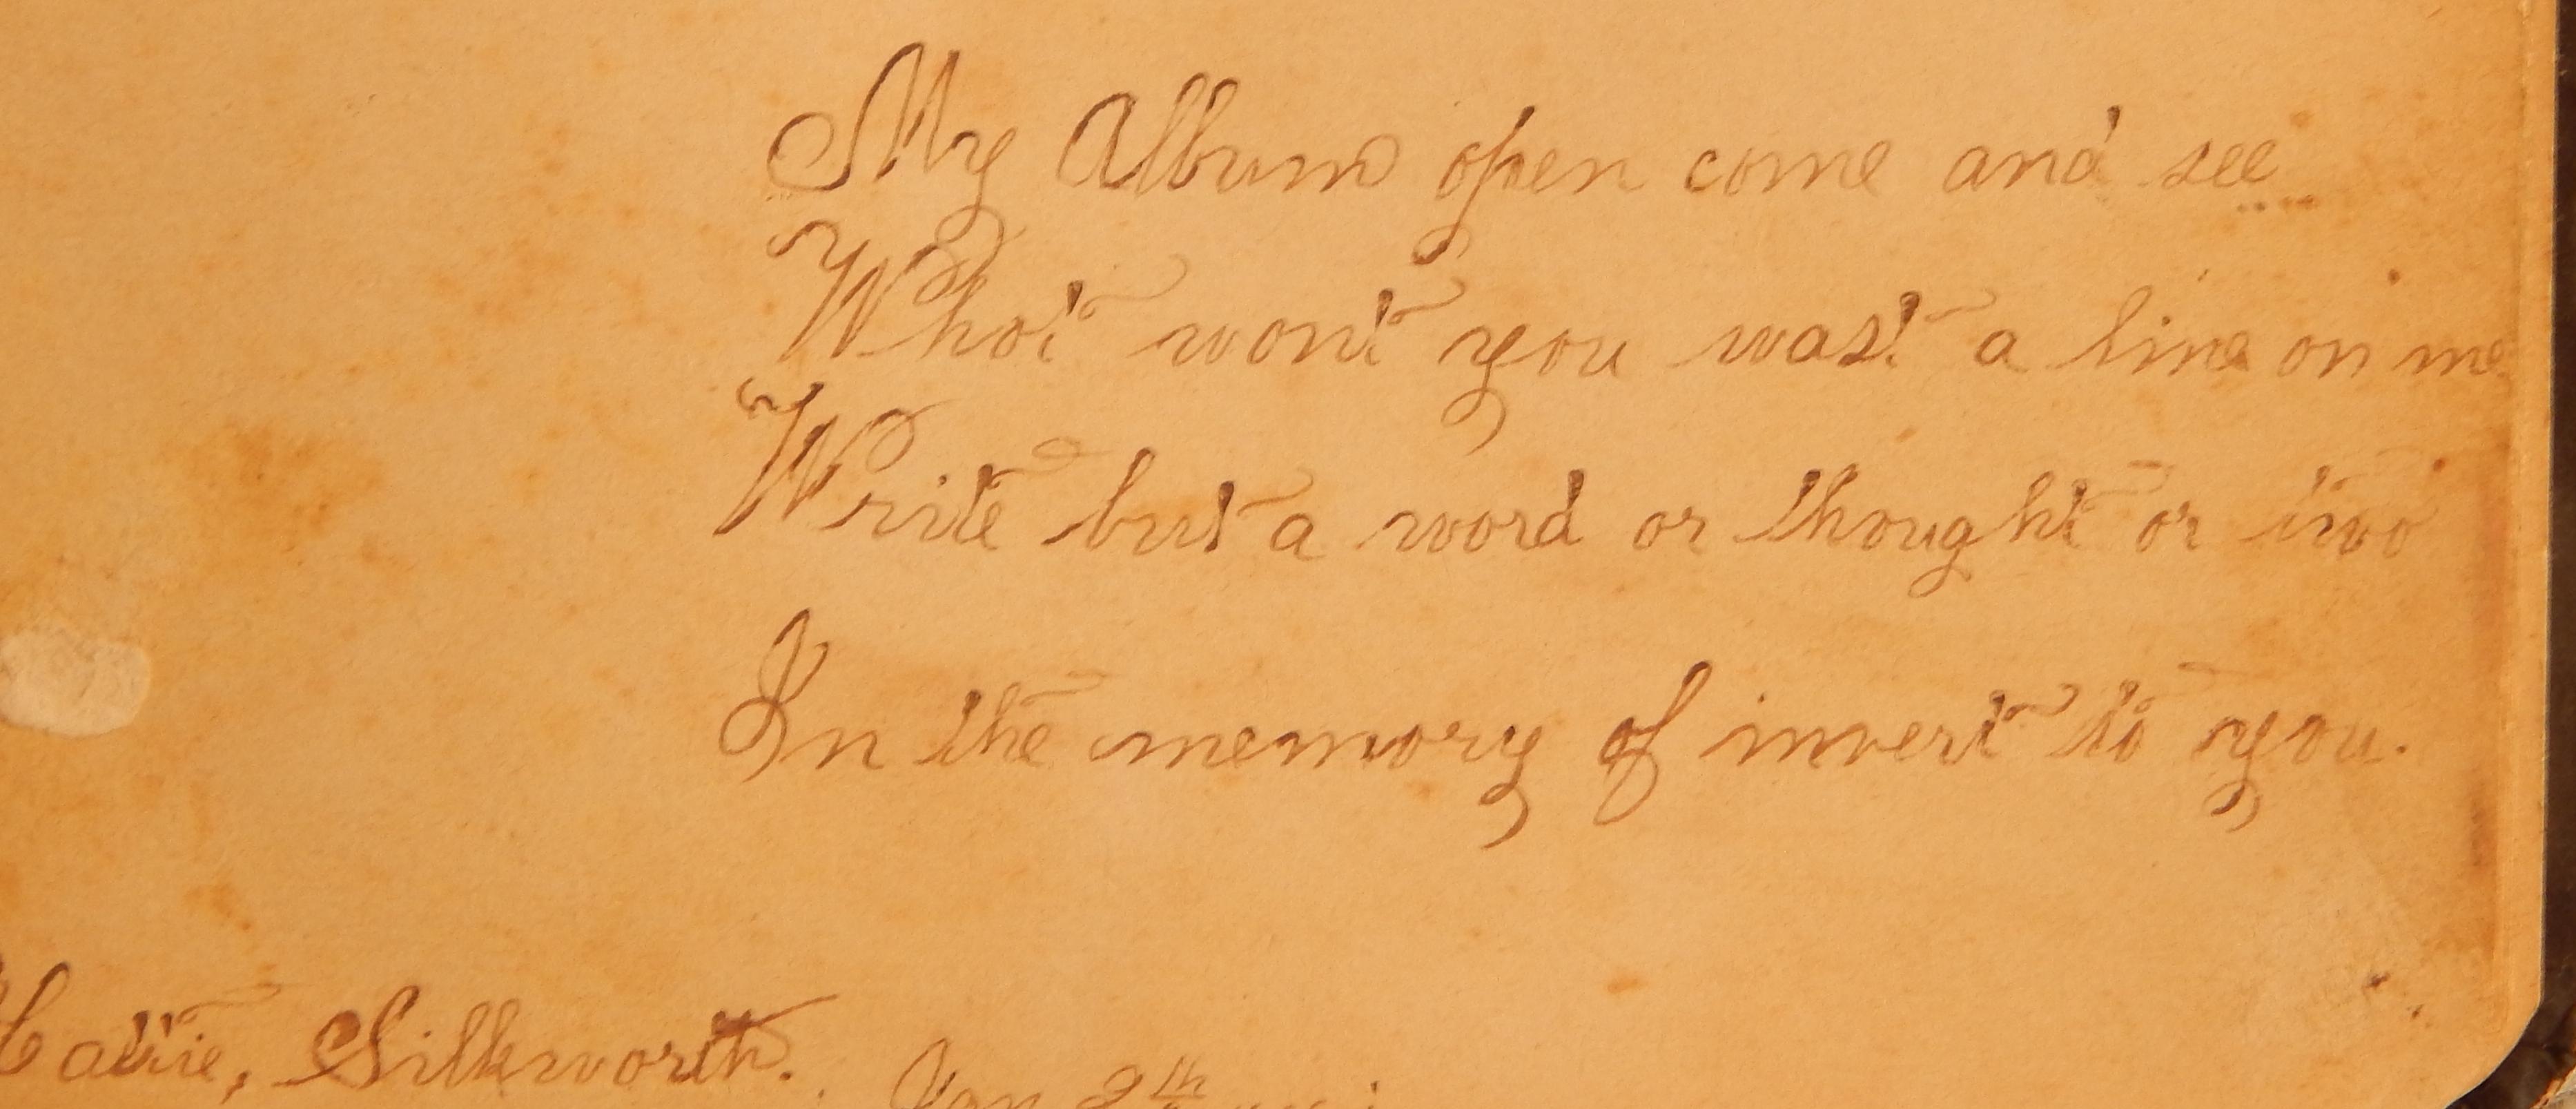 My Album open come and see
What wont you wast a line on me
Write but a word or thought or two
In the memory of invert to you.
Hattie, Silkworth. Jan 2th